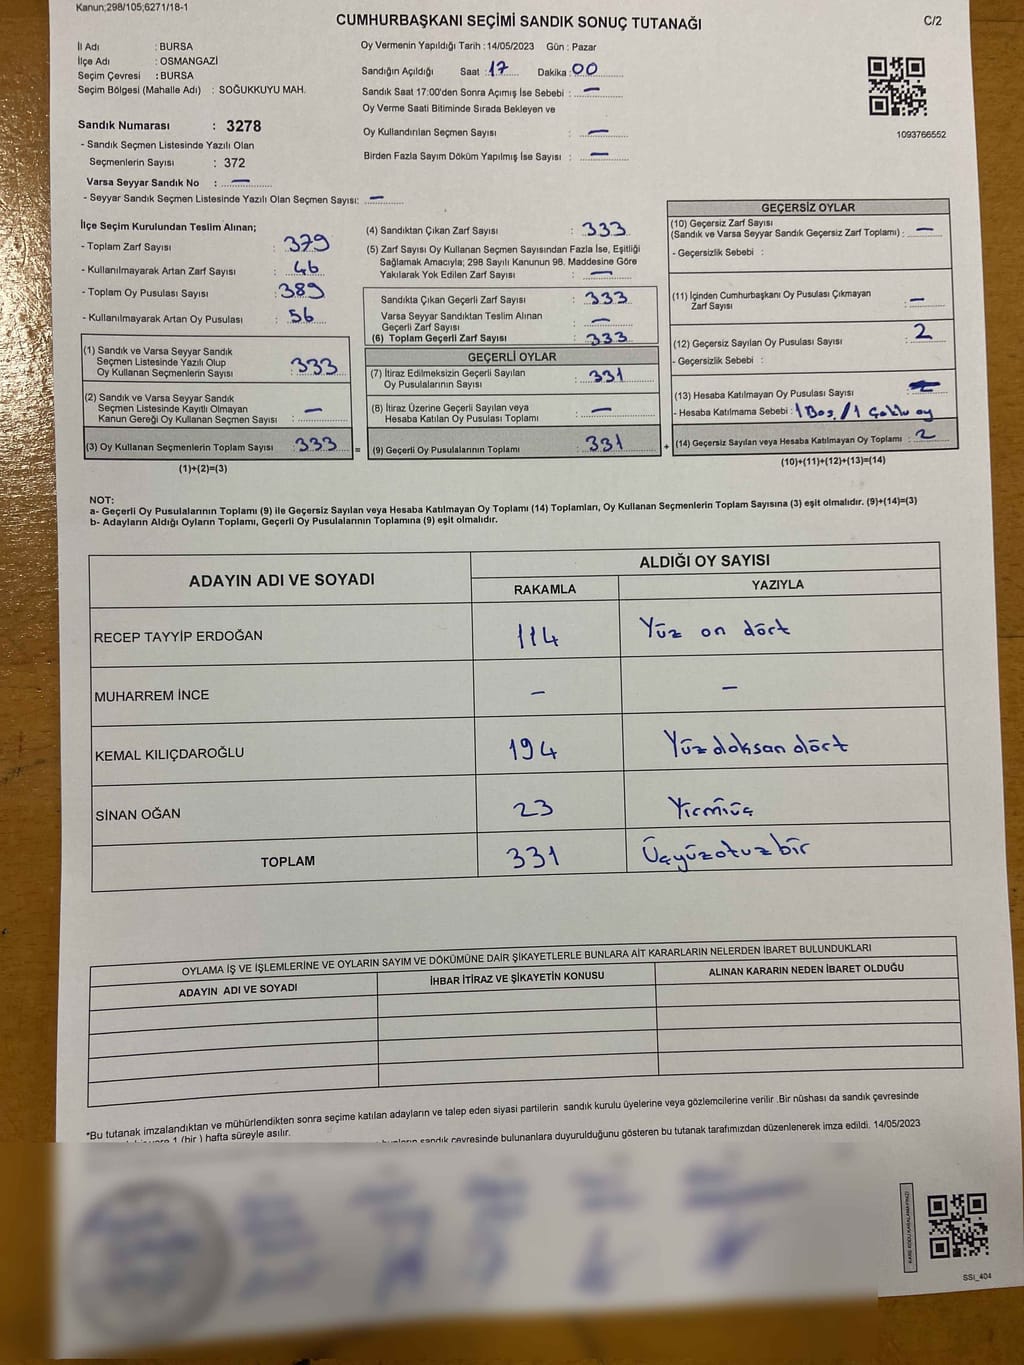 Kanun;298/105;6271/18-1
CUMHURBAŞKANI SEÇİMİ SANDIK SONUÇ TUTANAĞI
C/2
İl Adı : BURSA
İlçe Adı : OSMANGAZİ
Seçim Çevresi : BURSA
Seçim Bölgesi (Mahalle Adı) : SOĞUKKUYU MAH.
Sandık Numarası : 3278
- Sandık Seçmen Listesinde Yazılı Olan
Seçmenlerin Sayısı : 372
Varsa Seyyar Sandık No : —
- Seyyar Sandık Seçmen Listesinde Yazılı Olan Seçmen Sayısı: —
Oy Vermenin Yapıldığı Tarih : 14/05/2023 Gün : Pazar
Sandığın Açıldığı Saat : 17 Dakika : 00
Sandık Saat 17:00'den Sonra Açımış İse Sebebi : —
Oy Verme Saati Bitiminde Sırada Bekleyen ve
Oy Kullandırılan Seçmen Sayısı : —
Birden Fazla Sayım Döküm Yapılmış İse Sayısı : —
1093766552
İlçe Seçim Kurulundan Teslim Alınan;
- Toplam Zarf Sayısı : 379
- Kullanılmayarak Artan Zarf Sayısı : 46
- Toplam Oy Pusulası Sayısı : 389
- Kullanılmayarak Artan Oy Pusulası : 56
(1) Sandık ve Varsa Seyyar Sandık
Seçmen Listesinde Yazılı Olup
Oy Kullanan Seçmenlerin Sayısı : 333
(2) Sandık ve Varsa Seyyar Sandık
Seçmen Listesinde Kayıtlı Olmayan
Kanun Gereği Oy Kullanan Seçmen Sayısı : —
(3) Oy Kullanan Seçmenlerin Toplam Sayısı : 333 =
(1)+(2)=(3)
(4) Sandıktan Çıkan Zarf Sayısı : 333
(5) Zarf Sayısı Oy Kullanan Seçmen Sayısından Fazla İse, Eşitliği
Sağlamak Amacıyla; 298 Sayılı Kanunun 98. Maddesine Göre
Yakılarak Yok Edilen Zarf Sayısı : —
Sandıkta Çıkan Geçerli Zarf Sayısı : 333
Varsa Seyyar Sandıktan Teslim Alınan
Geçerli Zarf Sayısı : —
(6) Toplam Geçerli Zarf Sayısı : 333
GEÇERLİ OYLAR
(7) İtiraz Edilmeksizin Geçerli Sayılan
Oy Pusulalarının Sayısı : 331
(8) İtiraz Üzerine Geçerli Sayılan veya
Hesaba Katılan Oy Pusulası Toplamı : —
(9) Geçerli Oy Pusulalarının Toplamı : 331 +
GEÇERSİZ OYLAR
(10) Geçersiz Zarf Sayısı
(Sandık ve Varsa Seyyar Sandık Geçersiz Zarf Toplamı) : —
- Geçersizlik Sebebi :
(11) İçinden Cumhurbaşkanı Oy Pusulası Çıkmayan
Zarf Sayısı : —
(12) Geçersiz Sayılan Oy Pusulası Sayısı : 2
- Geçersizlik Sebebi :
(13) Hesaba Katılmayan Oy Pusulası Sayısı :
- Hesaba Katılmama Sebebi : 1 Boş / 1 Çoklu oy
(14) Geçersiz Sayılan veya Hesaba Katılmayan Oy Toplamı : 2
(10)+(11)+(12)+(13)=(14)
NOT:
a- Geçerli Oy Pusulalarının Toplamı (9) ile Geçersiz Sayılan veya Hesaba Katılmayan Oy Toplamı (14) Toplamları, Oy Kullanan Seçmenlerin Toplam Sayısına (3) eşit olmalıdır. (9)+(14)=(3)
b- Adayların Aldığı Oyların Toplamı, Geçerli Oy Pusulalarının Toplamına (9) eşit olmalıdır.
ADAYIN ADI VE SOYADI ALDIĞI OY SAYISI
RAKAMLA YAZIYLA
RECEP TAYYİP ERDOĞAN 114 Yüz on dört
MUHARREM İNCE — —
KEMAL KILIÇDAROĞLU 194 Yüzdoksan dört
SİNAN OĞAN 23 Yirmiüç
TOPLAM 331 Üçyüzotuzbir
OYLAMA İŞ VE İŞLEMLERİNE VE OYLARIN SAYIM VE DÖKÜMÜNE DAİR ŞİKAYETLERLE BUNLARA AİT KARARLARIN NELERDEN İBARET BULUNDUKLARI
ADAYIN ADI VE SOYADI İHBAR İTİRAZ VE ŞİKAYETİN KONUSU ALINAN KARARIN NEDEN İBARET OLDUĞU
*Bu tutanak imzalandıktan ve mühürlendikten sonra seçime katılan adayların ve talep eden siyasi partilerin sandık kurulu üyelerine veya gözlemcilerine verilir .Bir nüshası da sandık çevresinde
1 (bir ) hafta süreyle asılır.
sandık çevresinde bulunanlara duyurulduğunu gösteren bu tutanak tarafımızdan düzenlenerek imza edildi. 14/05/2023
KARE KODU KARALAMAYINIZ!
SSİ_404